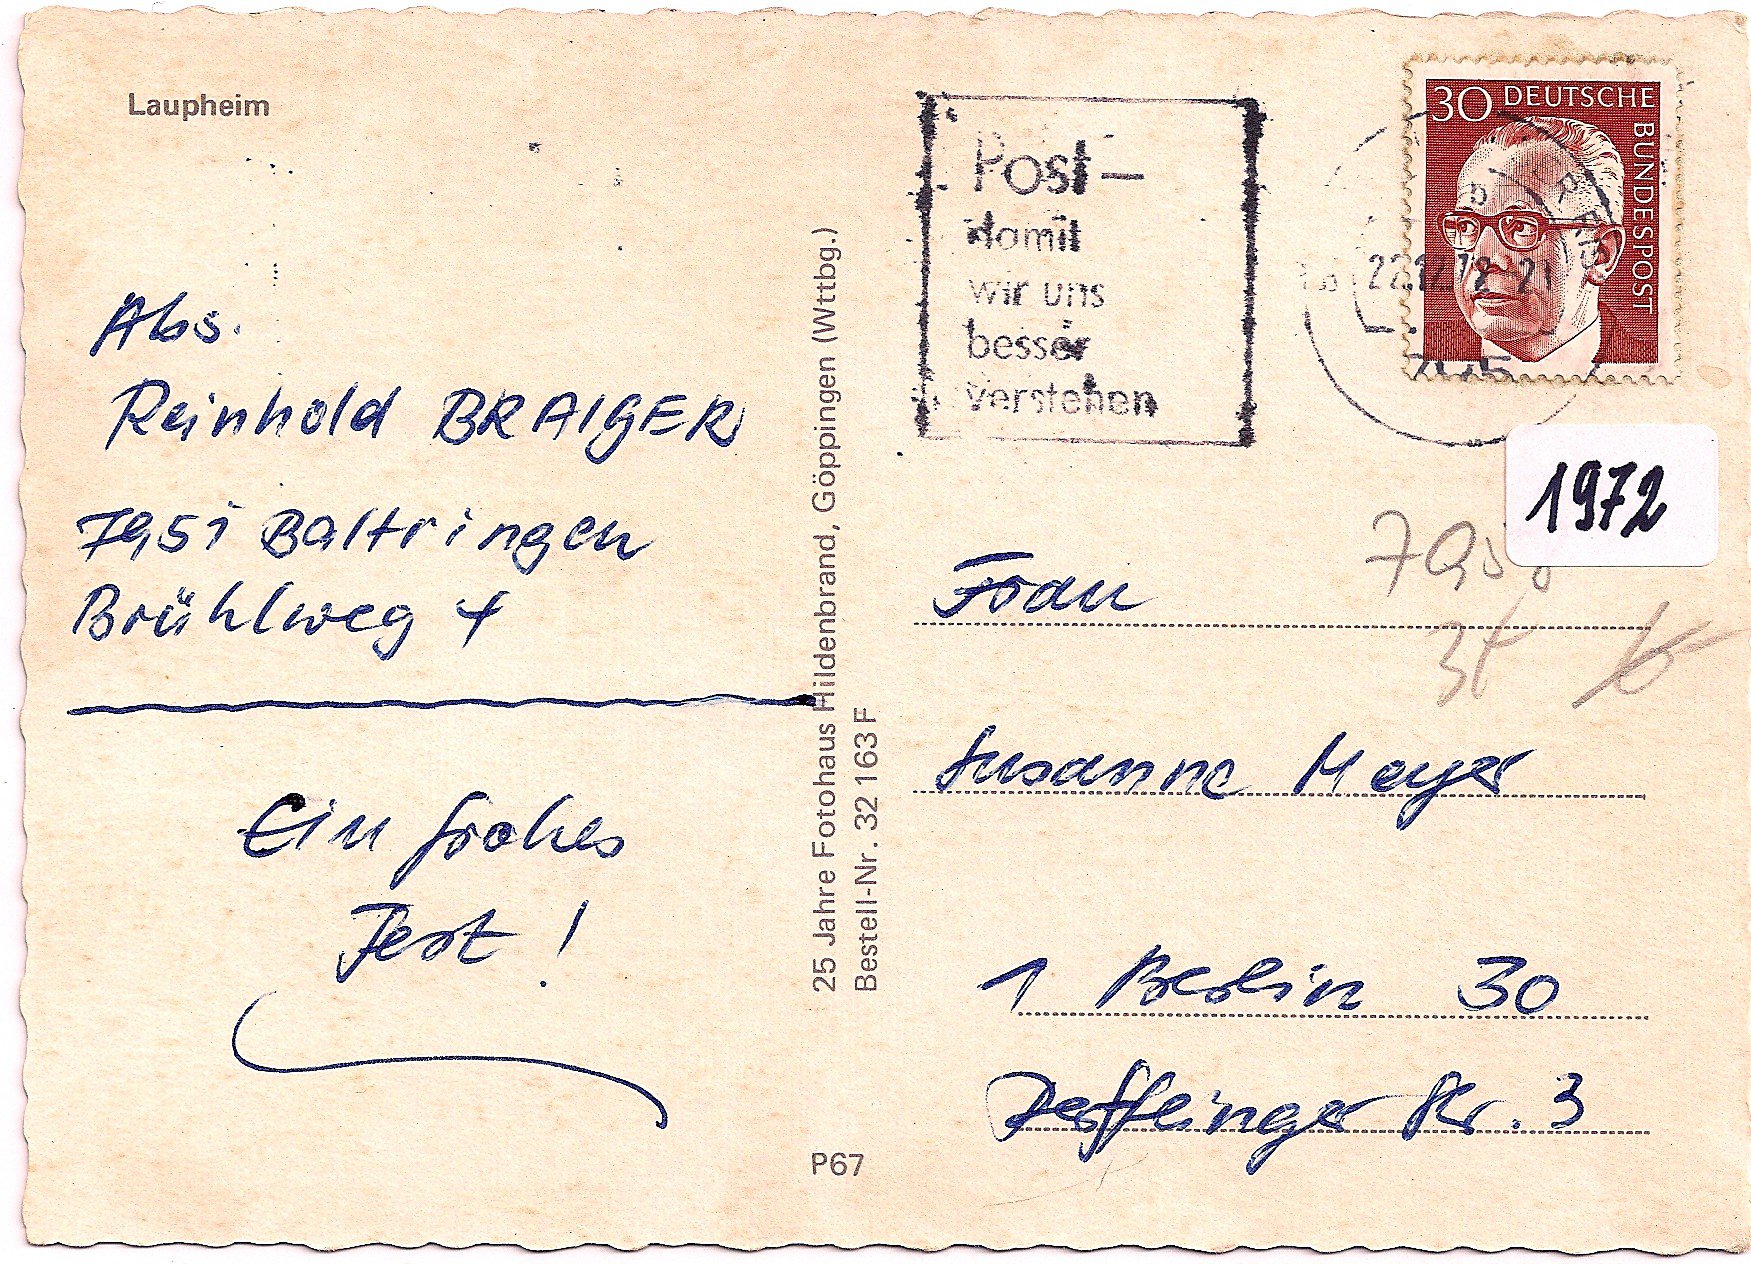 Laupheim
Abs.
Reinhold BRAIGER
7951 Baltringen
Brühlweg 4
Ein frohes
Fest!
25 Jahre Fotohaus Hildenbrand, Göppingen (Wttbg.)
Bestell-Nr. 32 163 F
P67
Post-
damit
wir uns
besser
verstehen
30 DEUTSCHE
BUNDESPOST
22.12.72-21
795
1972
Frau
Susanne Meyer
1 Berlin 30
Derfflinger Str. 3